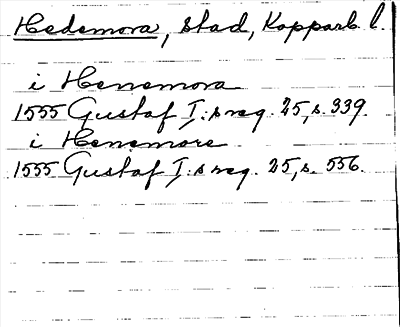 Hedemora, stad, Kopparb. l.
i Henemora
1555 Gustaf I:s reg. 25, s. 339.
i Henemore
1555 Gustaf I:s reg. 25, s. 556.